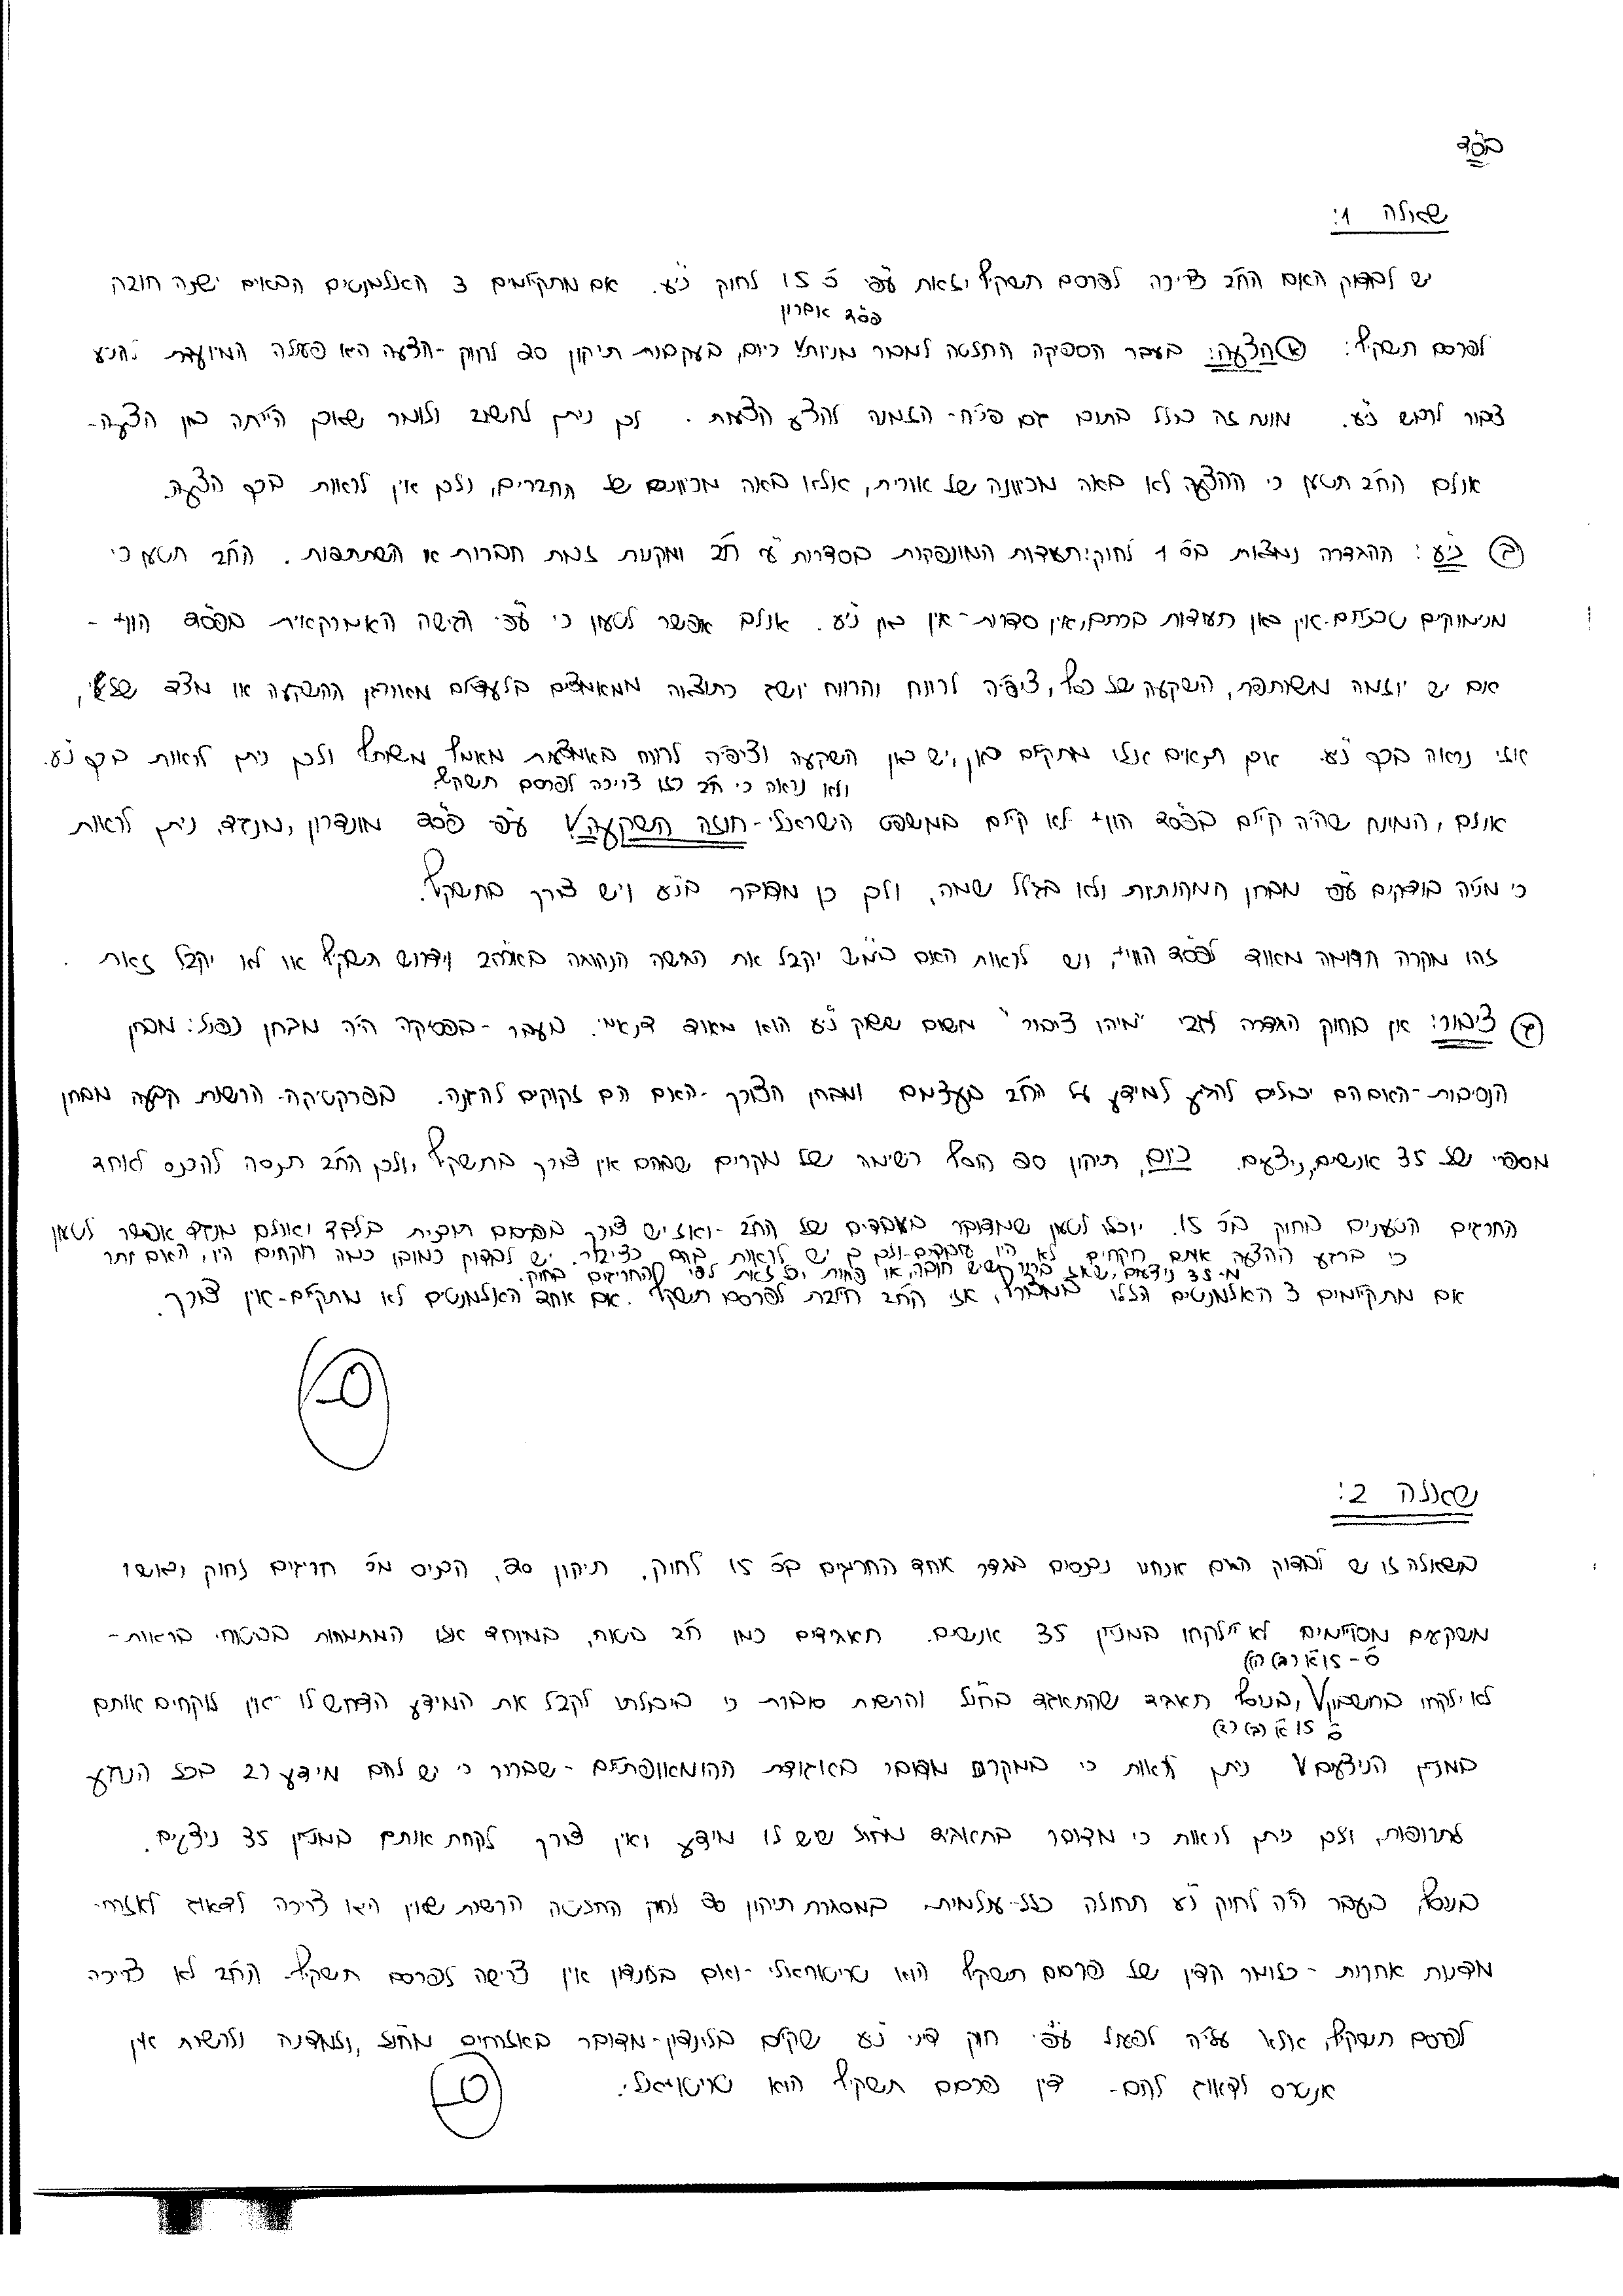 בס"ד
שאלה 1:
יש לבדוק האם החב' צריכה לפרסם תשקיף וזאת עפ"י ס' 15 לחוק ני"ע. אם מתקיימים 3 האלמנטים הבאים ישנה חובה
פס"ד אברון
לפרסם תשקיף: א) הצעה: בעבר הספיקה החלטה למכור מניות√ כיום, בעקבות תיקון 20 לחוק - הצעה היא פעולה המיועדת להניע
ציבור לרכוש ני"ע. מונח זה כולל בתוכו גם פניה - הזמנה להציע הצעות. לכן ניתן לחשוב ולומר שאכן הייתה כאן הצעה -
אולם החב' תטען כי ההצעה לא באה מכיוונה של אורית, אלא באה מכיוונם של החברים, ולכן אין לראות בכך הצעה.
ב) ני"ע: ההגדרה נמצאת בס' 1 לחוק: תעודות המונפקות בסדרות ע"י חב' ומקנות זכות חברות או השתתפות. החב' תטען כי
מנימוקים טכניים - אין כאן תעודות ברתם, אין סדרות - אין כאן ני"ע. אולם אפשר לטעון כי עפ"י הגישה האמריקאית בפס"ד הווי -
אם יש יוזמה משותפת, השקעה של כסף, ציפיה לרווח והרווח יושג כתוצאה ממאמצים בלעדיים מאורגן ההשקעה או מצד שלישי,
אזי נראה בכך ני"ע. אכן תנאים אלו מתקיים כאן, יש כאן השקעה וציפיה לרווח באמצעות מאמץ משותף ולכן ניתן לראות בכך ני"ע.
ולא נראה כי חב' כזו צריכה לפרסם תשקיף
אולם, המונח שהיה קיים בפס"ד הווי לא קיים במשפט הישראלי - חוזה השקעה√ עפ"י פס"ד מונדרון, מנגד, ניתן לראות
כי מניה בודקים עפ"י מבחן המהותיות ולא בגלל שמה, ולכן כן מדובר בני"ע ויש צורך בתשקיף.
זהו מקרה הדומה מאוד לפס"ד הווי, ויש לראות האם בימ"ש יקבל את הגישה הנהוגה בארה"ב וידרוש תשקיף או לא יקבל זאת.
ג) ציבור: אין בחוק הגדרה לגבי "מיהו ציבור" משום ששוק ני"ע הוא מאוד דינאמי. בעבר - בפסיקה היה מבחן כפול: מבחן
הנסיבות - האם הם יכולים להגיע למידע על החב' בעצמם ומבחן הצורך - האם הם זקוקים להגנה. בפרקטיקה - הרשות קבעה מבחן
מספרי של 35 אנשים, ניצעים. כיום, תיקון 20 הוסיף רשימה של מקרים שבהם אין צורך בתשקיף, ולכן החב' תנסה להכנס לאחד
החריגים הטעונים בחוק בס' 15. יוכלו לטעון שמדובר בעובדים של החב' - ואז יש צורך בפרסום חוברת בלבד ואולם מנגד אפשר לטעון
כי ברגע ההצעה אותם רוקחים לא היו עובדים - ולכן כן יש לראות בהם כציבור. יש לבדוק כמובן כמה רוקחים היו, האם יותר
מ-35 ניצעים, שאז ברור שיש חובה, או פחות וכל זאת לפי החריגים בחוק.
אם מתקיימים 3 האלמנטים הללו במצורף, אז החב' חייבת לפרסם תשקיף. אם אחד האלמנטים לא מתקיים - אין צורך.
שאלה 2:
בשאלה זו יש לבדוק האם אנחנו נכנסים בגדר אחד החריגים בס' 15 לחוק. תיקון 20, הכניס מס' חריגים לחוק
משקיעים מסויימים לא יילקחו במניין 35 אנשים. תאגידים כמו חב' ביטוח, במיוחד אלו המתמחות בביטוחי בריאות -
ס' - 15א(ב)(1)
לא ילקחו בחשבון√, בנוסף תאגיד שהתאגד בחו"ל והרשות סוברת כי ביכולתו לקבל את המידע הדרוש לו - אין לוקחים אותם
ס' 15א(ב)(2)
במניין הניצעים√ ניתן לראות כי במקרנו מדובר באגודת ההומאופתיים - שברור כי יש להם מידע רב בכל הנוגע
לתרופות, ולכן ניתן לראות כי מדובר בתאגיד מחו"ל שיש לו מידע ואין צורך לקחת אותם במניין 35 ניצעים.
בנוסף, בעבר היה לחוק ני"ע תחולה כלל-עולמית. במסגרת תיקון 20 לחוק החליטה הרשות שאין היא צריכה לדאוג לאזרחי
מדינות אחרות - כלומר הדין של פרסום תשקיף הוא טריטוריאלי - ואם בלונדון אין דרישה לפרסם תשקיף. החב' לא צריכה
לפרסם תשקיף, אלא עליה לפעול עפ"י חוק דיני ני"ע שקיים בלונדון - מדובר באזרחים מחו"ל, ולמדינה ולרשות אין
אנטרס לדאוג להם - דין פרסום תשקיף הוא טריטוריאלי.